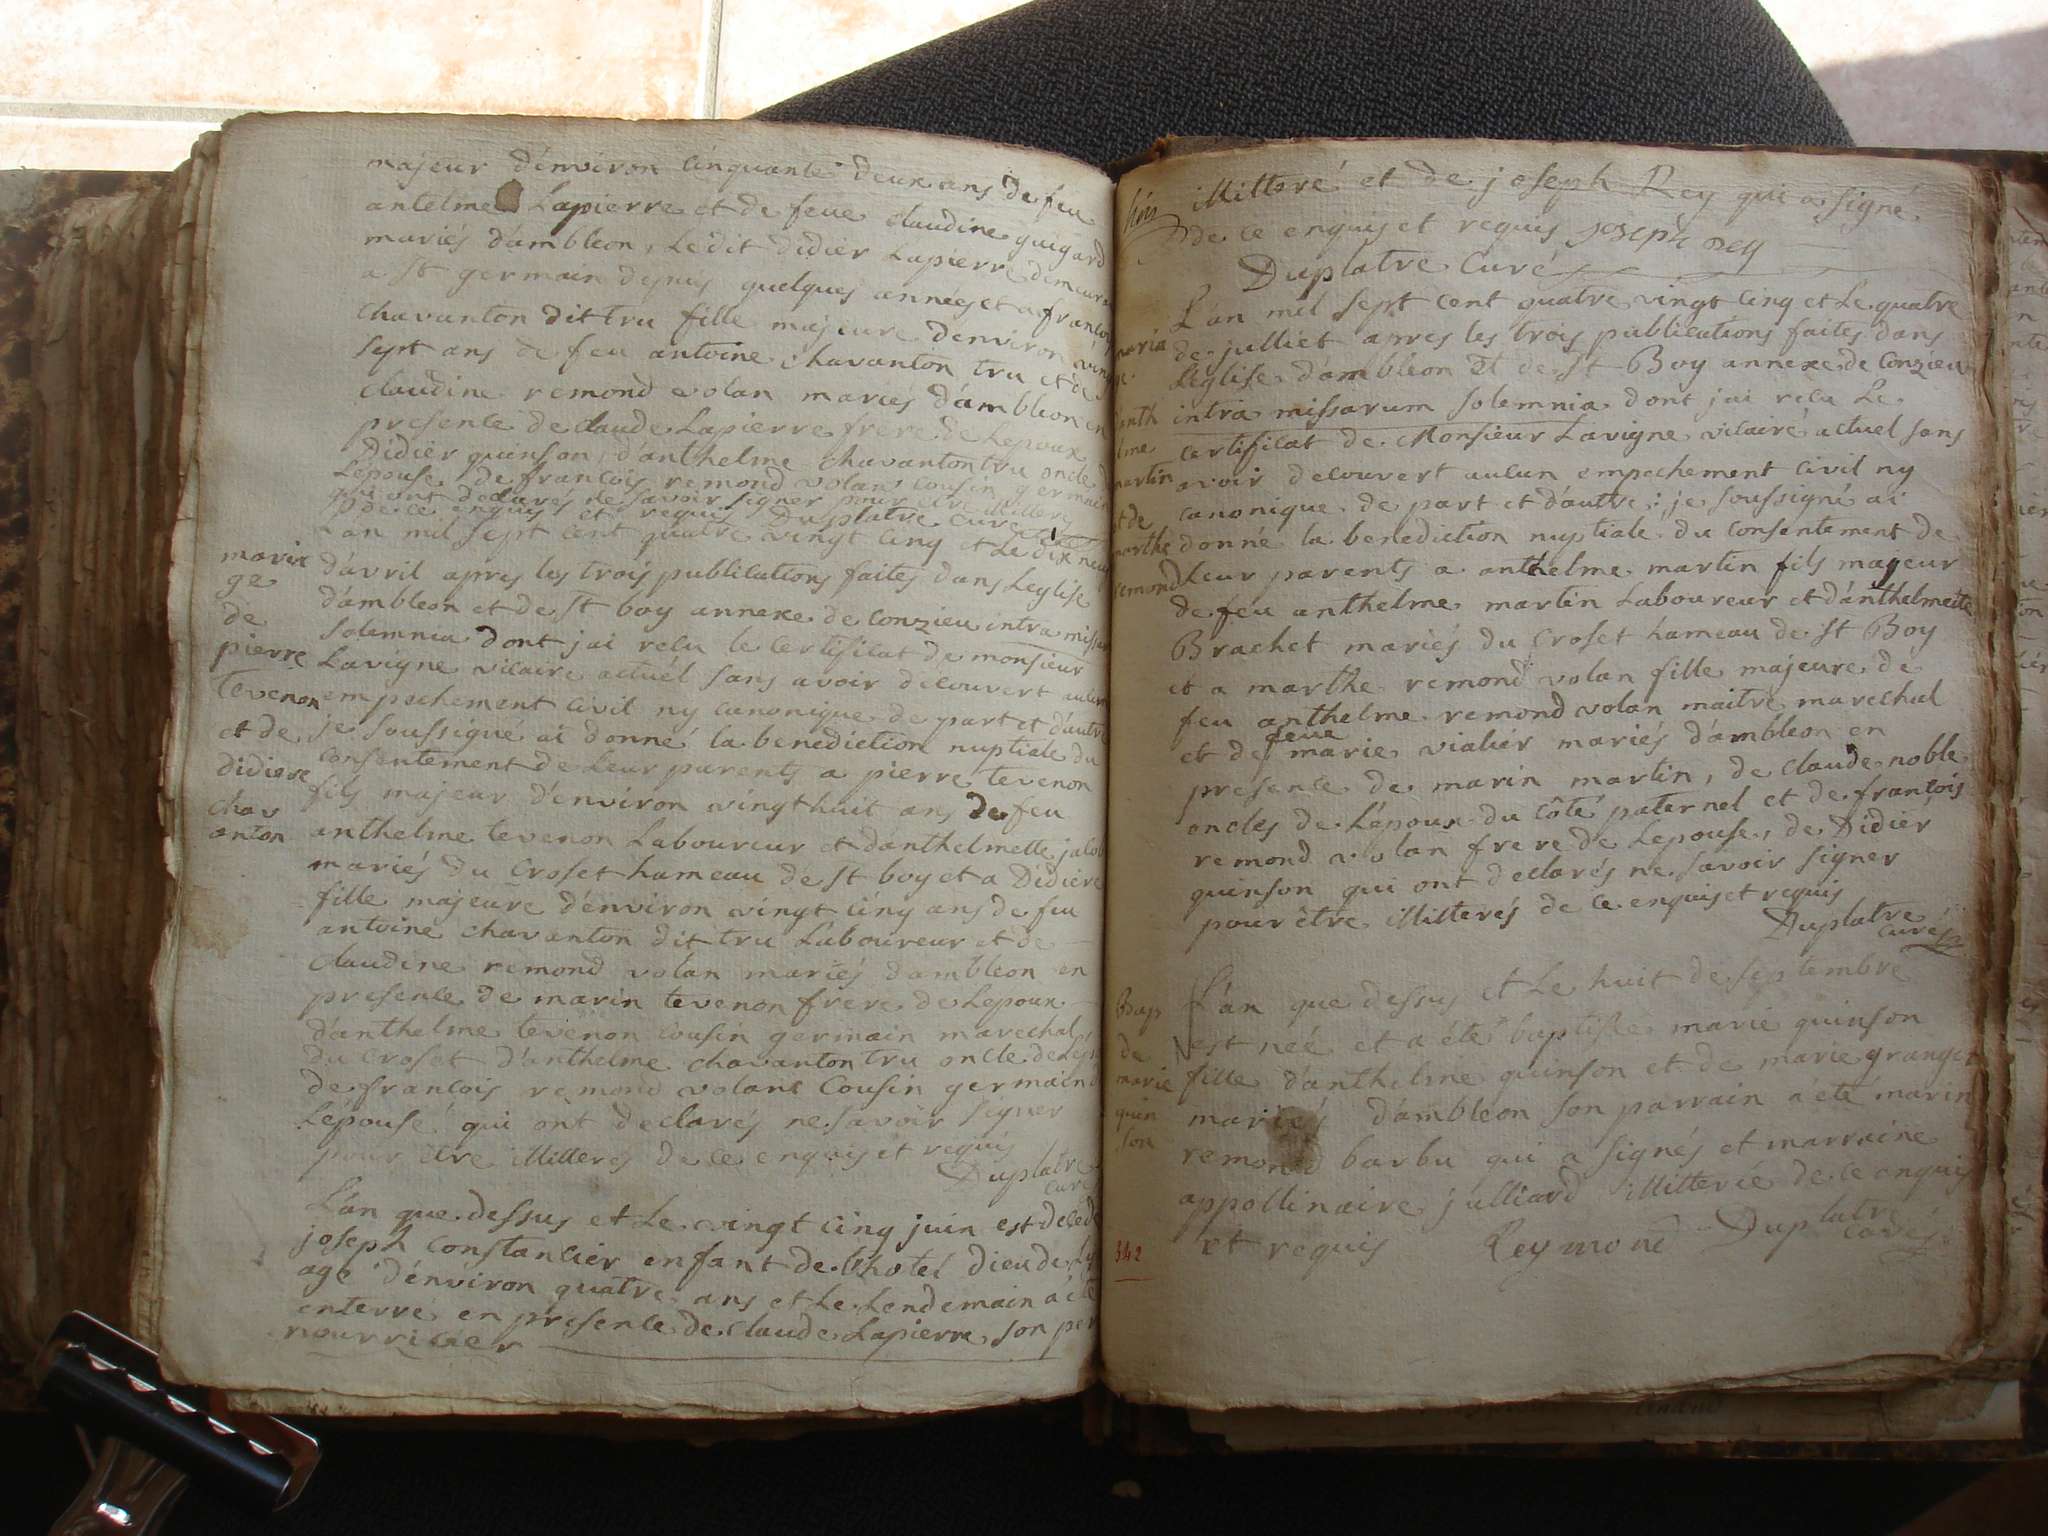 majeur d'environ cinquante deux ans de feu
antelme Lapierre et de feue claudine guigard
mariés d'ambleon, Le dit didier Lapierre demeure
a St germain depuis quelques années et a francois
chavanton dit tru fille majeure d'environ vingt
sept ans de feu antoine chavanton tru et de
claudine remond volan mariés d'ambleon en
presence de claude Lapierre frere de Lepoux
Didier quinson, d'anthelme chavanton tru oncle d
Lepouse, de francois remond volan cousin germain
qui ont declarés ne savoir signer pour etre illiteres
de ce enquis et requis Duplatre curé
L'an mil sept cent quatre vingt cinq et Le dix neuf
d'avril apres les trois publications faites dans Leglise
d'ambleon et de St boy annexe de conzieu intra missar
solemnia dont jai reçu le certificat de monsieur
Lavigne vicaire actuel sans avoir decouvert aucun
empechement civil ny canonique de part et d'autre
je soussigné ai donné la benediction nuptiale du
consentement de Leur parents a pierre tevenon
fils majeur d'environ vingt huit ans de feu
anthelme tevenon Laboureur et d'anthelmette jacob
mariés du Croset hameau de St boy et a Didiere
fille majeure d'environ vingt cinq ans de feu
antoine chavanton dit tru Laboureur et de
claudine remond volan mariés d'ambleon en
presence de marin tevenon frere de Lepoux
d'anthelme tevenon cousin germain marechal
du Croset d'anthelme chavanton tru oncle de Lep
de francois remond volant Cousin germain
Lépouse qui ont declarés ne savoir signer
pour etre illiteres de ce enquis et requis
Duplatre
curé
marie
ge
de
pierre
tevenon
et de
didiere
chav
anton
L'an que dessus et Le vingt cinq juin est decede
joseph constancier enfant de Lhotel dieu de Ly
age d'environ quatre ans et Le Lendemain a été
enterré en présence de claude Lapierre son per
nourricier
illitere et de joseph Rey qui a signé
de ce enquis et requis joseph rey
Duplatre Curé
L'an mil sept cent quatre vingt cinq et Le quatre
de julliet apres les trois publications faites dans
Leglise d'ambleon et de St Boy annexe de Conzieu
intra missarum solemnia dont jai reçu Le
certificat de Monsieur Lavigne vicaire actuel sans
avoir decouvert aucun empechement civil ny
canonique de part et d'autre: je soussigné ai
donné la benediction nuptiale du consentement de
Leur parents a anthelme martin fils majeur
de feu anthelme martin Laboureur et d'anthelmette
Brachet mariés du Croset hameau de St Boy
et a marthe remond volan fille majeure de
feu anthelme remond volan maitre marechal
et de feue marie vialier mariés d'ambleon en
presence de marin martin, de claude noble
oncles de Lépoux du côté paternel et de françois
remond volan frere de Lepouse, de Didier
quinson qui ont declarés ne savoir signer
pour être illiterés de ce enquis et requis
Duplatre
curé
maria
ge
anth
lme
martin
et de
marthe
remond
L'an que dessus et Le huit de septembre
est née et a été baptisée marie quinson
fille d'anthelme quinson et de marie granger
mariés d'ambleon son parrain a été marin
remond barbu qui a signés et marraine
appollinaire julliard illiterée de ce enquis
et requis Reymond Duplatre
curé
Bap
de
marie
quin
son
342